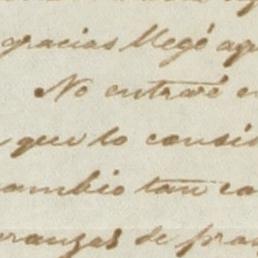 gracias llegó aqu
No entraré e
que lo consid
cambio tan ca
eranzas de fran